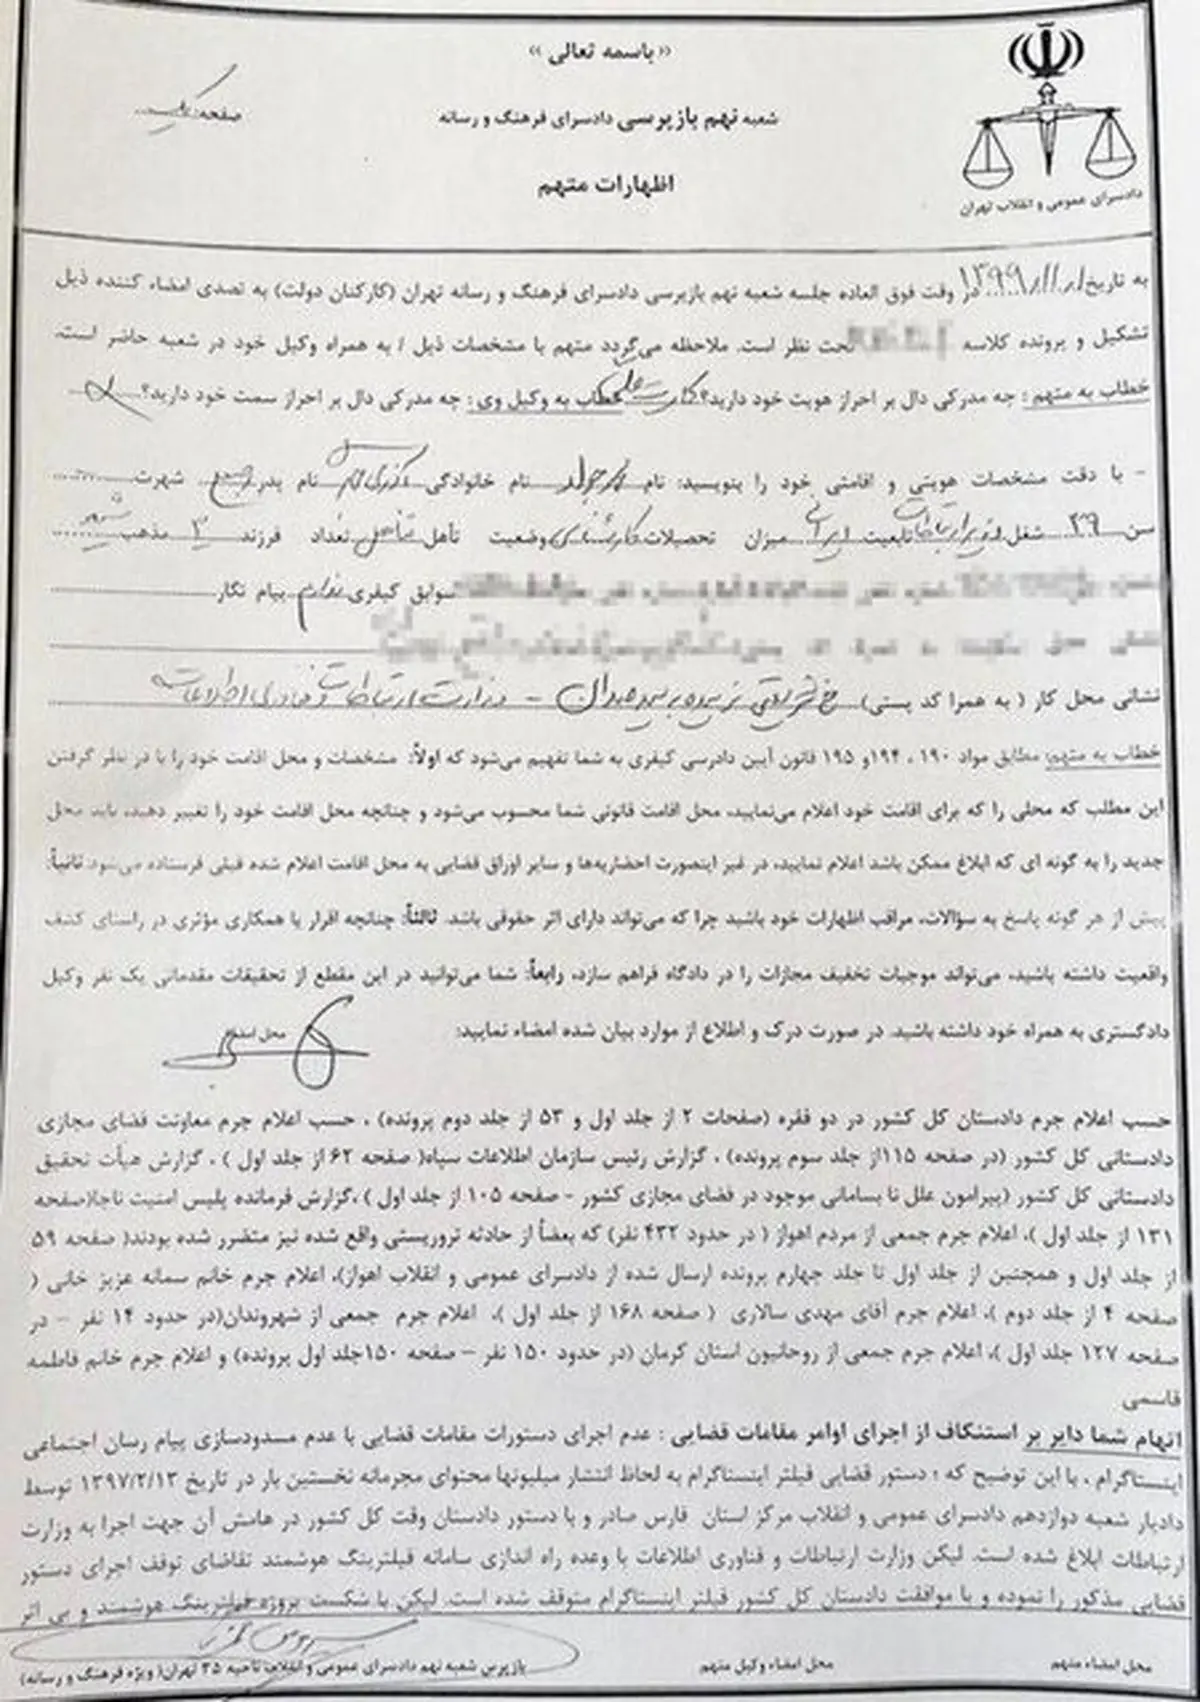 «باسمه تعالی»
صفحه: یک
شعبه نهم بازپرسی دادسرای فرهنگ و رسانه
اظهارات متهم
دادسرای عمومی و انقلاب تهران
به تاریخ ۱۳۹۹/۱۱/۱ در وقت فوق العاده جلسه شعبه نهم بازپرسی دادسرای فرهنگ و رسانه تهران (کارکنان دولت) به تصدی امضاء کننده ذیل
تشکیل و پرونده کلاسه تحت نظر است. ملاحظه می‌گردد متهم با مشخصات ذیل / به همراه وکیل خود در شعبه حاضر است.
خطاب به متهم: چه مدرکی دال بر احراز هویت خود دارید؟ کارت ملی خطاب به وکیل وی: چه مدرکی دال بر احراز سمت خود دارید؟
- با دقت مشخصات هویتی و اقامتی خود را بنویسید: نام محمدجواد نام خانوادگی آذری جهرمی نام پدر شهرت
سن ۳۹ شغل وزیر ارتباطات تابعیت ایرانی میزان تحصیلات کارشناسی وضعیت تأهل متأهل تعداد فرزند ۲ مذهب شیعه
سوابق کیفری ندارم پیام نگار
نشانی محل کار ( به همرا کد پستی) خ شریعتی نرسیده به سیدخندان - وزارت ارتباطات و فناوری اطلاعات
خطاب به متهم: مطابق مواد ۱۹۰ ، ۱۹۴و ۱۹۵ قانون آیین دادرسی کیفری به شما تفهیم می‌شود که اولاً: مشخصات و محل اقامت خود را با در نظر گرفتن
این مطلب که محلی را که برای اقامت خود اعلام می‌نمایید، محل اقامت قانونی شما محسوب می‌شود و چنانچه محل اقامت خود را تغییر دهید، باید محل
جدید را به گونه ای که ابلاغ ممکن باشد اعلام نمایید، در غیر اینصورت احضاریه‌ها و سایر اوراق قضایی به محل اقامت اعلام شده قبلی فرستاده می‌شود ثانیاً:
پیش از هر گونه پاسخ به سؤالات، مراقب اظهارات خود باشید چرا که می‌تواند دارای اثر حقوقی باشد. ثالثاً: چنانچه اقرار یا همکاری مؤثری در راستای کشف
واقعیت داشته باشید، می‌تواند موجبات تخفیف مجازات را در دادگاه فراهم سازد، رابعاً: شما می‌توانید در این مقطع از تحقیقات مقدماتی یک نفر وکیل
دادگستری به همراه خود داشته باشید. در صورت درک و اطلاع از موارد بیان شده امضاء نمایید: محل امضاء
حسب اعلام جرم دادستان کل کشور در دو فقره (صفحات ۲ از جلد اول و ۵۳ از جلد دوم پرونده) ، حسب اعلام جرم معاونت فضای مجازی
دادستانی کل کشور (در صفحه ۱۱۵از جلد سوم پرونده) ، گزارش رئیس سازمان اطلاعات سپاه( صفحه ۶۲ از جلد اول ) ، گزارش هیأت تحقیق
دادستانی کل کشور (پیرامون علل نا بسامانی موجود در فضای مجازی کشور - صفحه ۱۰۵ از جلد اول ) ،گزارش فرمانده پلیس امنیت ناجا(صفحه
۱۳۱ از جلد اول )، اعلام جرم جمعی از مردم اهواز ( در حدود ۴۳۲ نفر) که بعضاً از حادثه تروریستی واقع شده نیز متضرر شده بودند( صفحه ۵۹
از جلد اول و همچنین از جلد اول تا جلد چهارم پرونده ارسال شده از دادسرای عمومی و انقلاب اهواز)، اعلام جرم خانم سمانه عزیز خانی (
صفحه ۴ از جلد دوم )، اعلام جرم آقای مهدی سالاری ( صفحه ۱۶۸ از جلد اول )، اعلام جرم جمعی از شهروندان(در حدود ۱۴ نفر - در
صفحه ۱۲۷ جلد اول )، اعلام جرم جمعی از روحانیون استان کرمان (در حدود ۱۵۰ نفر - صفحه ۱۵۰جلد اول پرونده) و اعلام جرم خانم فاطمه
قاسمی
اتهام شما دایر بر استنکاف از اجرای اوامر مقامات قضایی : عدم اجرای دستورات مقامات قضایی با عدم مسدودسازی پیام رسان اجتماعی
اینستاگرام ، با این توضیح که : دستور قضایی فیلتر اینستاگرام به لحاظ انتشار میلیونها محتوای مجرمانه نخستین بار در تاریخ ۱۳۹۷/۲/۱۳ توسط
دادیار شعبه دوازدهم دادسرای عمومی و انقلاب مرکز استان فارس صادر و با دستور دادستان وقت کل کشور در هامش آن جهت اجرا به وزارت
ارتباطات ابلاغ شده است. لیکن وزارت ارتباطات و فناوری اطلاعات با وعده راه اندازی سامانه فیلترینگ هوشمند تقاضای توقف اجرای دستور
قضایی مذکور را نموده و با موافقت دادستان کل کشور فیلتر اینستاگرام متوقف شده است. لیکن با شکست پروژه فیلترینگ هوشمند و بی اثر
محل امضاء متهم محل امضاء وکیل متهم بازپرس شعبه نهم دادسرای عمومی و انقلاب ناحیه ۳۵ تهران( ویژه فرهنگ و رسانه)